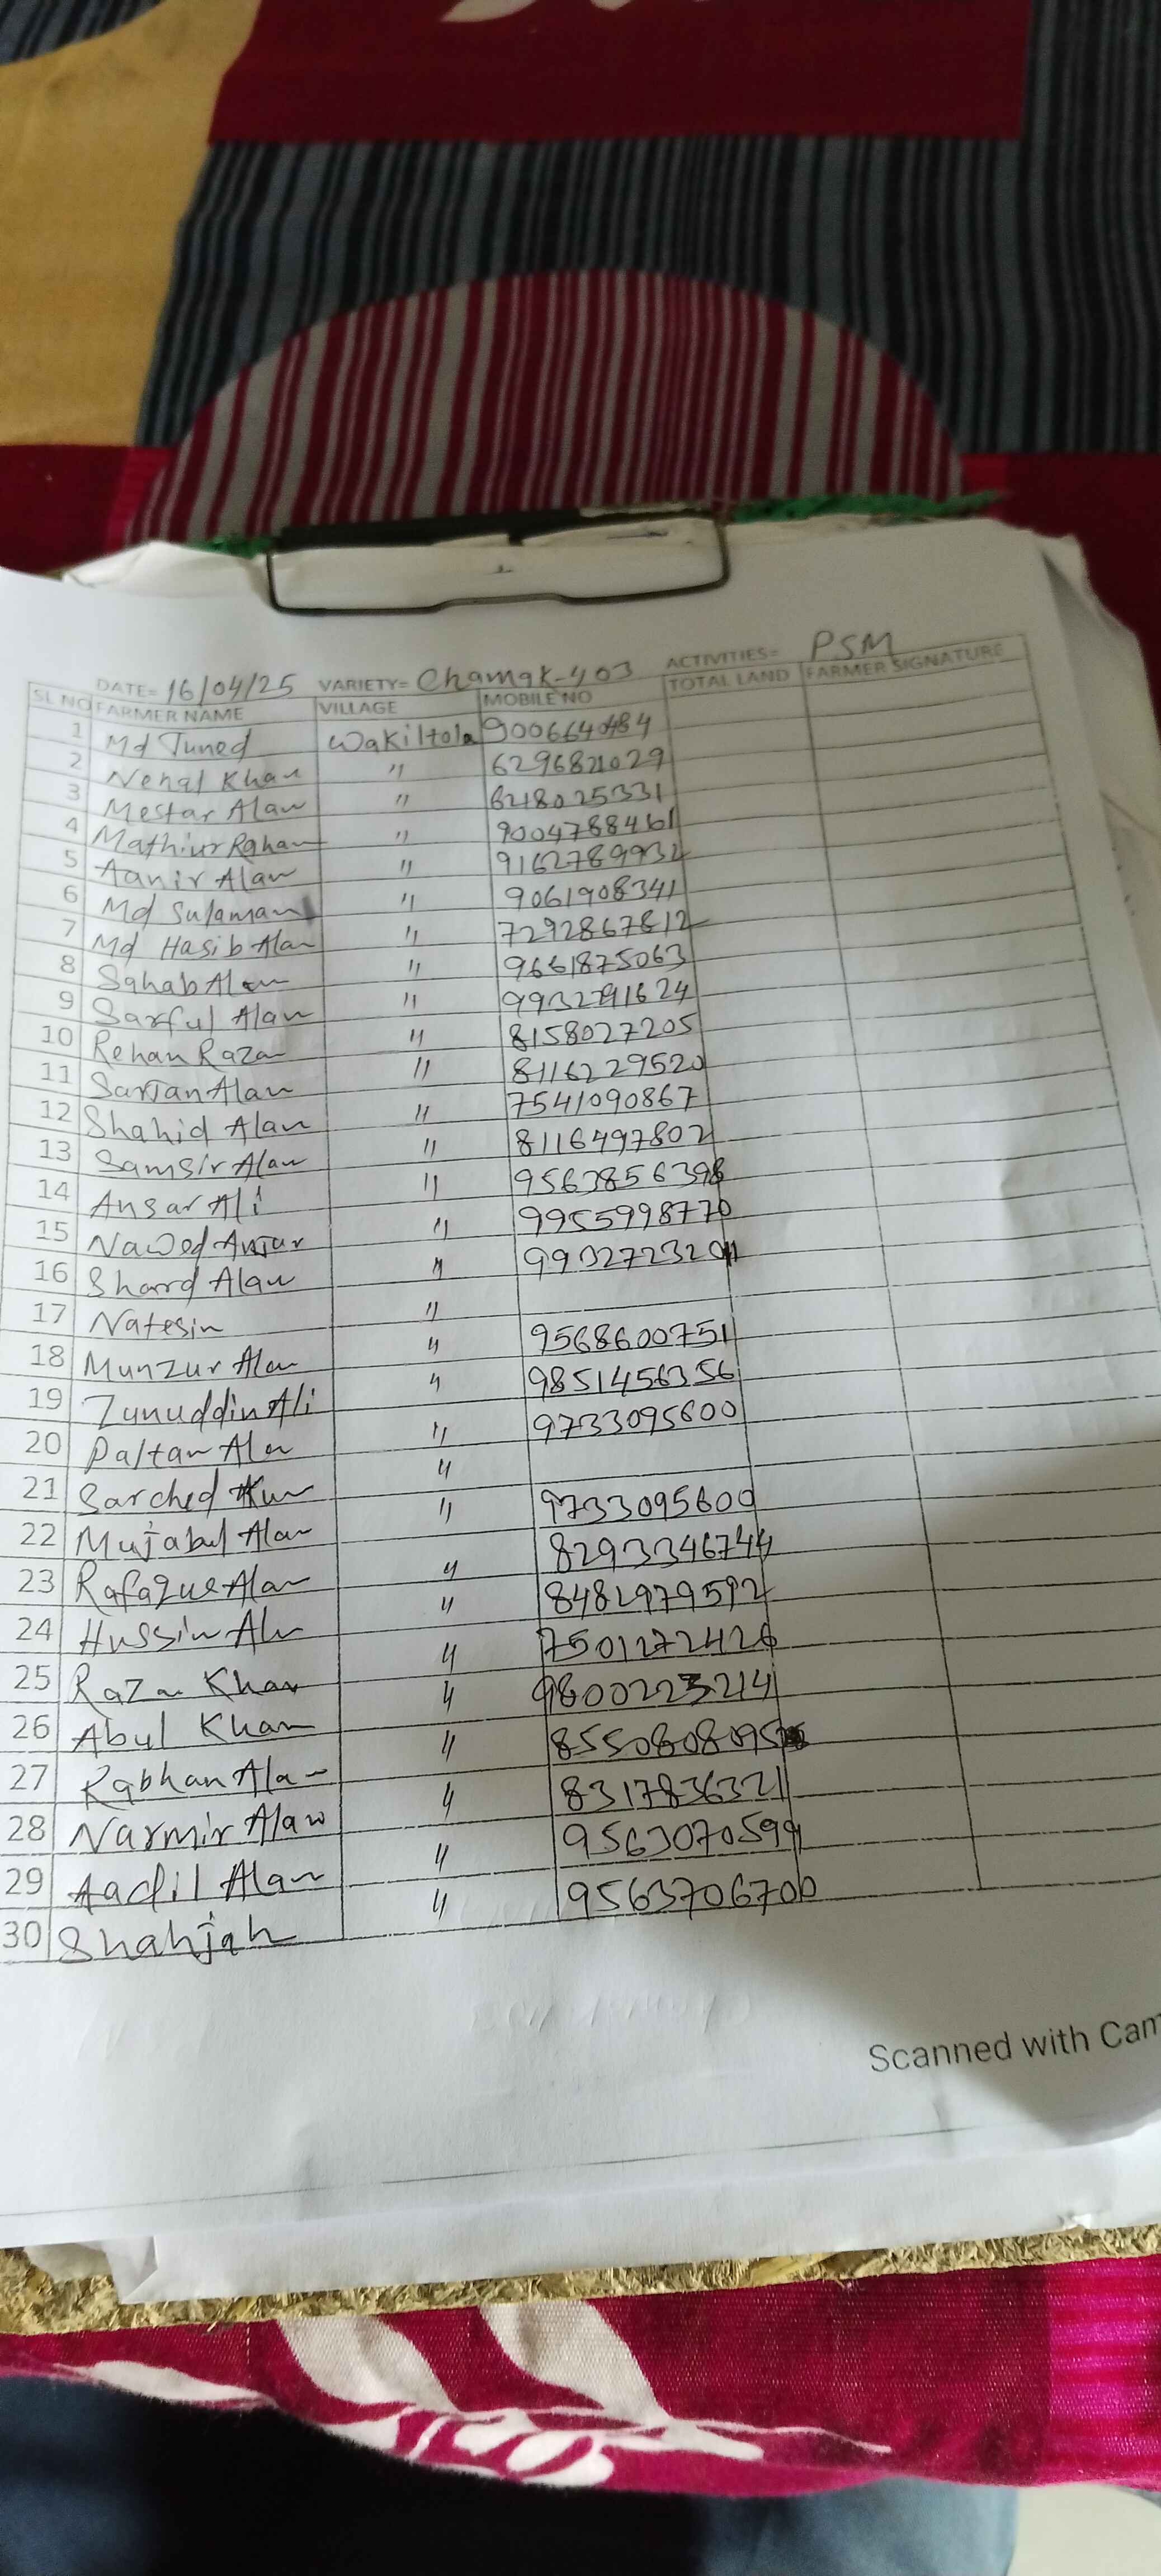 DATE= 16/04/25 VARIETY= Chamak-403 ACTIVITIES= PSM
SL NO FARMER NAME VILLAGE MOBILE NO TOTAL LAND FARMER SIGNATURE
1 Md Juned Wakiltola 9006640484
2 Nehal Khan " 6296821029
3 Mestar Alam " 6218025331
4 Mathiur Rahan " 9004788461
5 Aanir Alam " 9162789932
6 Md Sulaman " 9061908341
7 Md Hasib Alam " 7292867812
8 Sahab Alam " 9661875063
9 Sarful Alam " 9932791624
10 Rehan Raza " 8158027205
11 Sartan Alam " 8116229520
12 Shahid Alam " 7541090867
13 Samsir Alam " 8116497802
14 Ansar Ali " 9563856398
15 Nawed " 9955998770
16 Alam " 9932723201
17 Natesin "
18 Munzur Alam " 9568600751
19 Zunuddin Ali " 9851456356
20 Paltan Alam " 9733095600
21 Sarched "
22 Mujabul Alam " 9733095600
23 Rafaque Alam " 8293346744
24 Hussin Alam " 8482979592
25 Raza Khan " 7501272426
26 Abul Khan " 9800223214
27 Rabhan Alam " 8550808095
28 Narmir Alam " 8317836321
29 Aadil Alam " 9563070599
30 Shahjah " 9563706700
Scanned with Cam